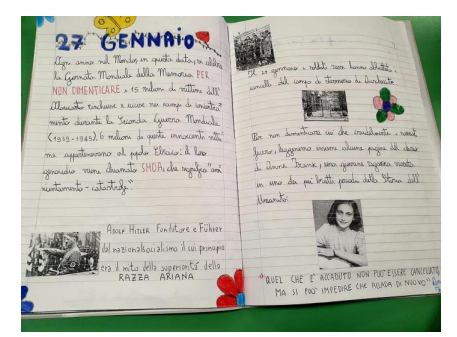 27 GENNAIO
Ogni anno nel Mondo, in questa data, si celebra
la Giornata Mondiale della Memoria PER
NON DIMENTICARE i 15 milioni di vittime dell'
Olocausto rinchiuse e uccise nei campi di concentra
mento durante la Seconda Guerra Mondiale
(1939-1945). 6 milioni di queste innocenti vitti
me appartenevano al popolo Ebraico: il loro
genocidio viene chiamato SHOA, che significa "an
nientamento - catastrofe".
ADOLF HITLER Fonditore e Führer
del nazionalsocialismo il cui principio
era il mito della superiorità della
RAZZA ARIANA
Il 27 gennaio i soldati russi hanno abbattuto i
cancelli del campo di sterminio di
Per non dimenticare ciò che crudelmente i nazisti
fecero, leggeremo insieme alcune pagine del diario
di Anne Frank, una giovane ragazza vissuta
in uno dei più brutti periodi della Storia dell'
Umanità:
"QUEL CHE E' ACCADUTO NON PUO' ESSERE CANCELLATO,
MA SI PUO' IMPEDIRE CHE ACCADA DI NUOVO"